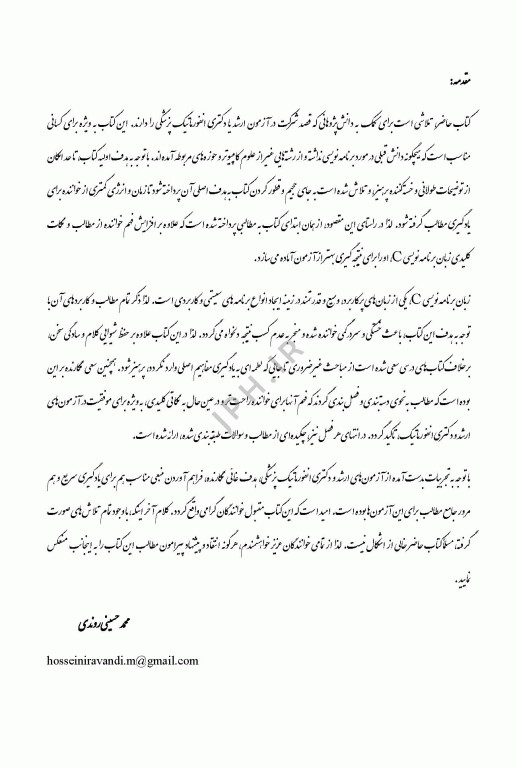 مقدمه:
کتاب حاضر، تلاشی است برای کمک به دانش‌پژوهانی که قصد شرکت در آزمون ارشد یا دکتری انفورماتیک پزشکی را دارند. این کتاب به ویژه برای کسانی
مناسب است که هیچگونه دانش قبلی در مورد برنامه نویسی نداشته و از رشته‌هایی غیر از علوم کامپیوتر و حوزه‌های مربوطه آمده‌اند. با توجه به هدف اولیه کتاب، تا حد امکان
از توضیحات طولانی و خسته‌کننده پرهیز و تلاش شده است به جای حجیم و قطور کردن کتاب به هدف اصلی آن پرداخته شود تا زمان و انرژی کمتری از خواننده برای
یادگیری مطالب گرفته شود. لذا در راستای این مقصود، از همان ابتدای کتاب به مطالبی پرداخته شده است که علاوه بر افزایش فهم خواننده از مطالب و نکات
کلیدی زبان برنامه نویسی C، او را برای نتیجه گیری بهتر از آزمون آماده می‌سازد.
زبان برنامه نویسی C، یکی از زبان‌های پرکاربرد، وسیع و قدرتمند در زمینه ایجاد انواع برنامه های سیستمی و کاربردی است. لذا ذکر تمام مطالب و کاربردهای آن با
توجه به هدف این کتاب، باعث خستگی و سردرگمی خواننده شده و منجر به عدم کسب نتیجه دلخواه می‌گردد. لذا در این کتاب علاوه بر حفظ شیوایی کلام و سادگی سخن،
برخلاف کتاب‌های درسی سعی شده است از مباحث غیرضروری تا جایی که لطمه‌ای به یادگیری مفاهیم اصلی وارد نگردد، پرهیز شود. همچنین سعی نگارنده بر این
بوده است که مطالب به نحوی دسته بندی و فصل بندی گردند که فهم آنها برای خواننده راحت‌تر و در عین حال به نکاتی کلیدی، به ویژه برای موفقیت در آزمون‌های
ارشد و دکتری انفورماتیک، تاکید گردد. در انتهای هر فصل نیز، چکیده‌ای از مطالب و سوالات طبقه بندی شده، ارائه شده است.
با توجه به تجربیات بدست آمده از آزمون‌های ارشد و دکتری انفورماتیک پزشکی، هدف غائی نگارنده، فراهم آوردن منبعی مناسب هم برای یادگیری سریع و هم
مرور جامع مطالب برای این آزمون‌ها بوده است. امید است که این کتاب مقبول خوانندگان گرامی واقع گردد. کلام آخر اینکه، با وجود تمام تلاش‌های صورت
گرفته، مسلما کتاب حاضر خالی از اشکال نیست. لذا از تمامی خوانندگان عزیز خواهشمندم، هرگونه انتقاد و پیشنهاد پیرامون مطالب این کتاب را به اینجانب منعکس
نمایید.
محمد حسینی روندی
hosseiniravandi.m@gmail.com